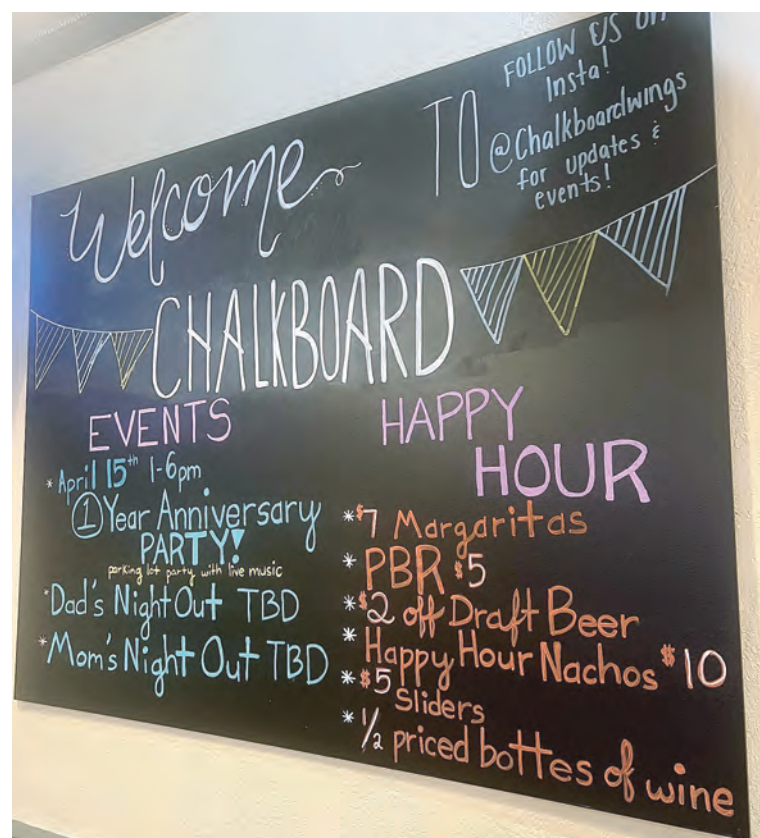 Welcome TO
CHALKBOARD
FOLLOW US on
Insta!
@Chalkboardwings
for updates &
events!
EVENTS
*April 15th 1-6pm
1 Year Anniversary
PARTY!
parking lot party with live music
*Dad's Night Out TBD
*Mom's Night Out TBD
HAPPY
HOUR
*$7 Margaritas
*PBR $5
*$2 off Draft Beer
*Happy Hour Nachos $10
*$5 Sliders
*1/2 priced bottes of wine